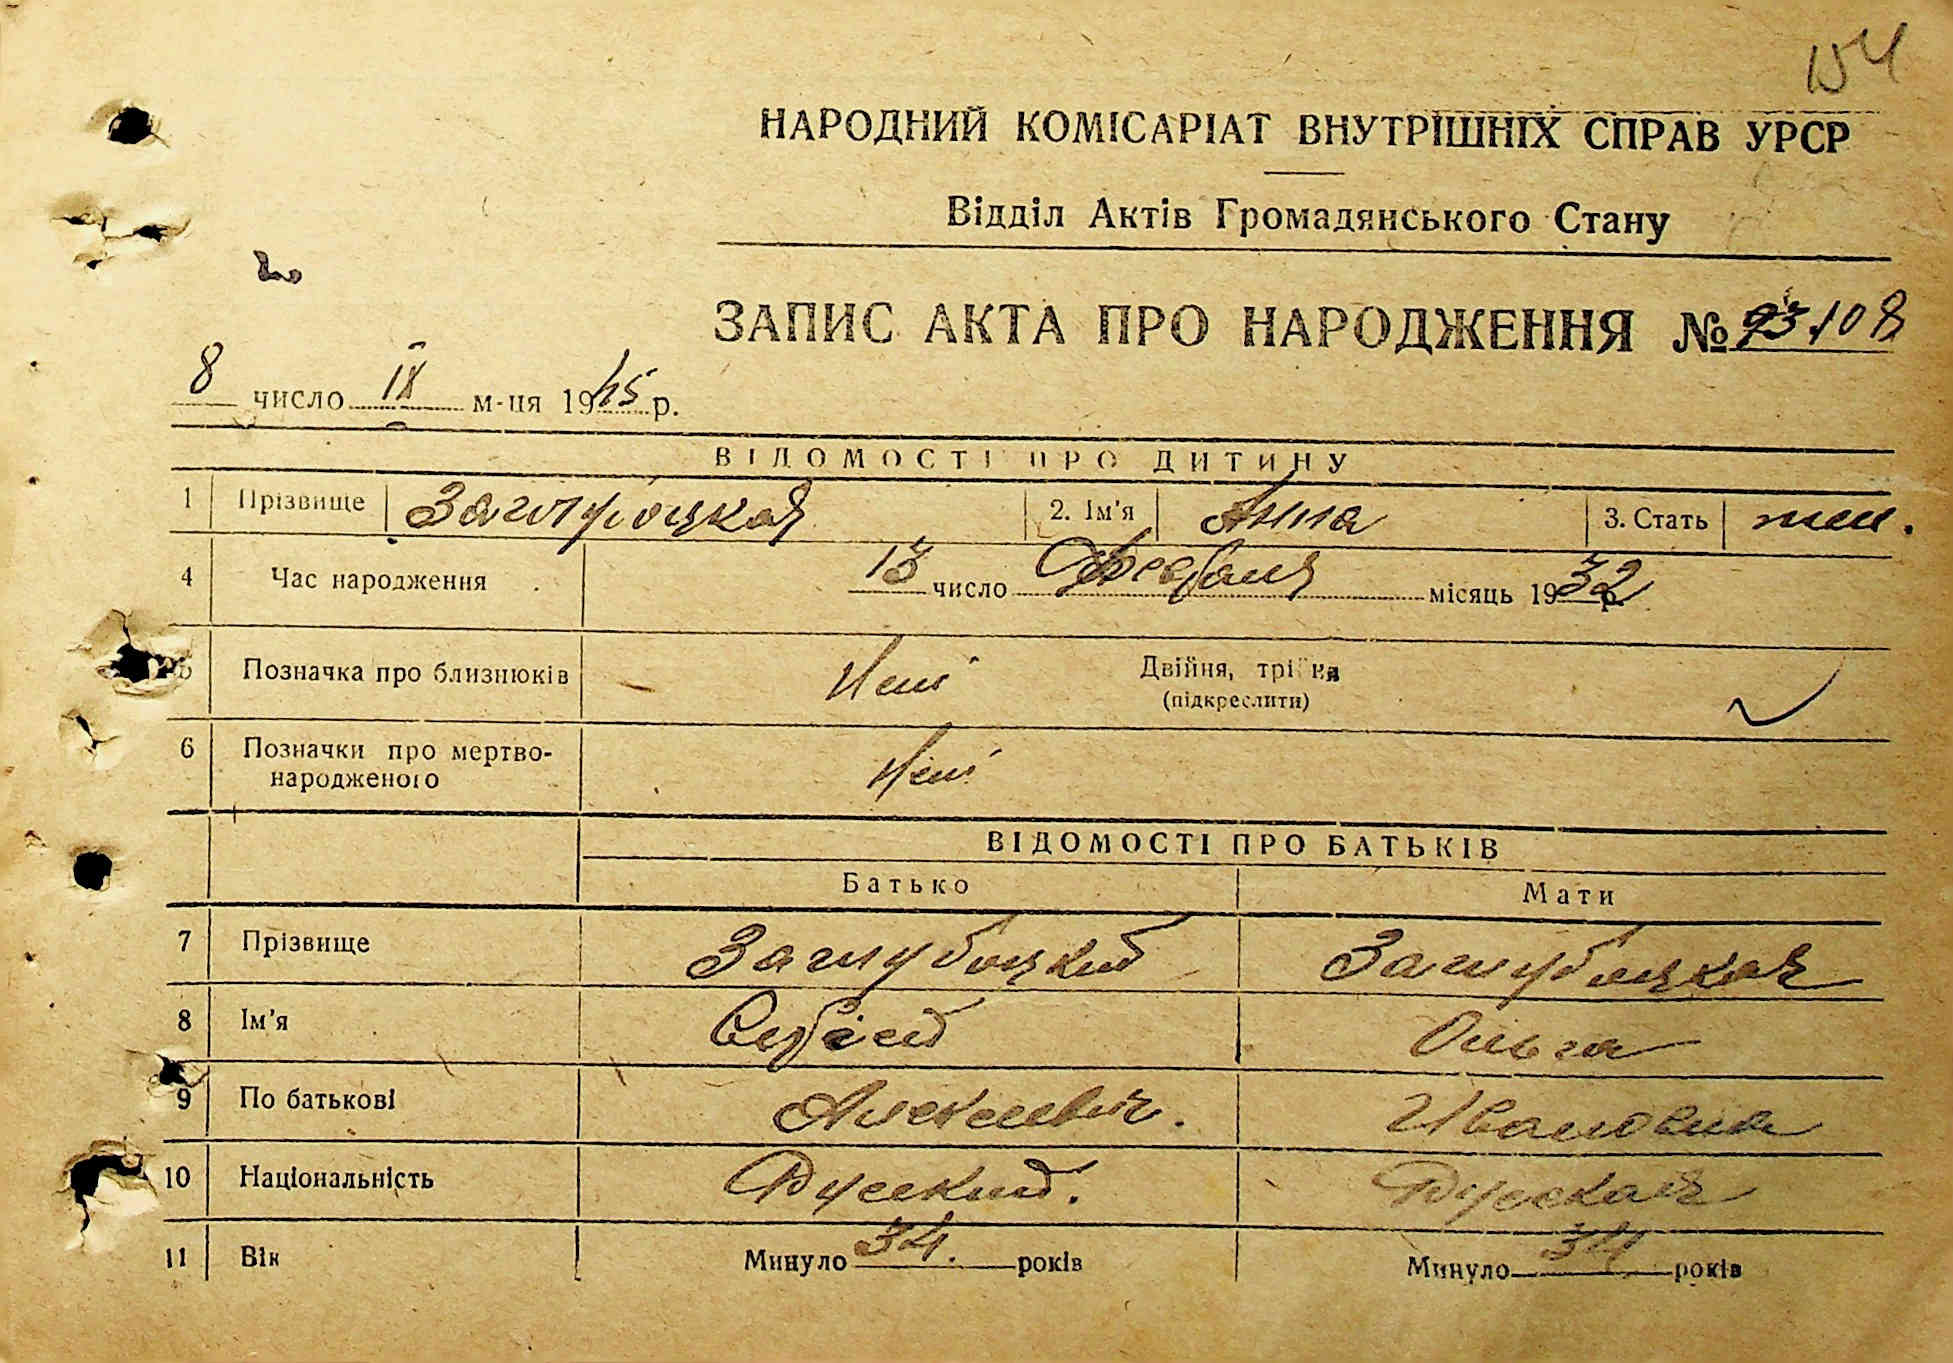 154
НАРОДНИЙ КОМІСАРІАТ ВНУТРІШНІХ СПРАВ УРСР
Відділ Актів Громадянського Стану
ЗАПИС АКТА ПРО НАРОДЖЕННЯ № 108
8 число IX м-ця 1945 р.
ВІДОМОСТІ ПРО ДИТИНУ
1 Прізвище 2. Ім'я Анна 3. Стать жен.
4 Час народження 13 число Февраля місяць 1932 р.
5 Позначка про близнюків Нет Двійня, трійня
(підкреслити)
6 Позначки про мертво-
народженого Нет
ВІДОМОСТІ ПРО БАТЬКІВ
Батько Мати
7 Прізвище
8 Ім'я Сергей Ольга
9 По батькові Алексеевич. Ивановна
10 Національність Русский. Русская
11 Вік Минуло 34. років Минуло 34 років